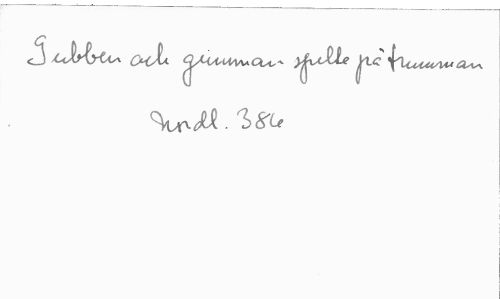 Gubben och gumman spelte på trumman
Nordl. 386